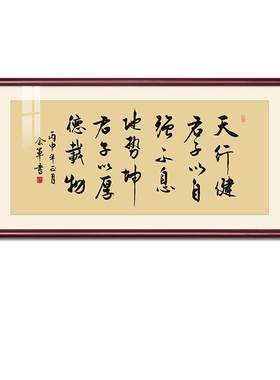 天行健
君子以自
强不息
地势坤
君子以厚
德载物
丙申年正月
书